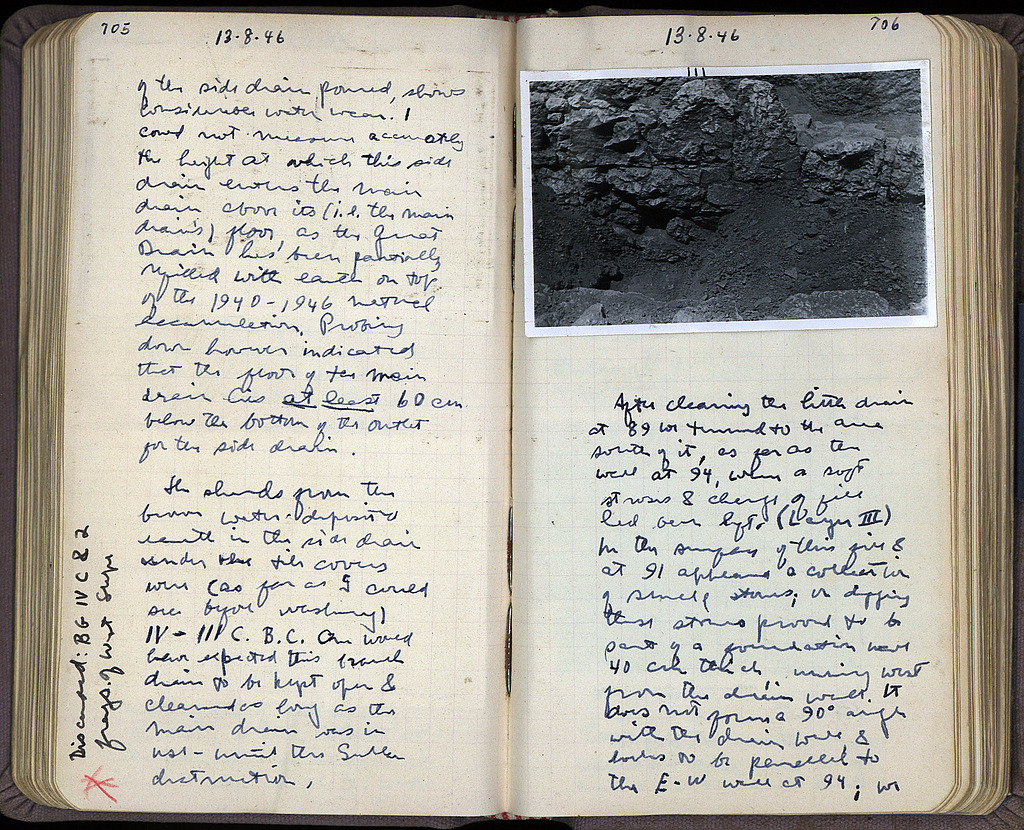 705
13·8·46
of the side drain poured, shows
considerable water wear. I
could not measure accurately
the height at which this side
drain enters the main
drain above its (i.e. the main
drain's) floor, as the Great
Drain has been partially
refilled with earth on top
of the 1940-1946 natural
accumulation. Probing
down however indicated
that the floor of the main
drain lies at least 60 cm
below the bottom of the outlet
for the side drain.
The sherds from the
brown water-deposited
earth in the side drain
under the tile covers
were (as far as I could
see before washing)
IV - III C. B.C. One would
have expected this branch
drain to be kept open &
cleaned as long as the
main drain was in
use - until the Sullan
destruction.
Discarded: BG IV C & 2
frags. of West Slope
706
13·8·46
After clearing the little drain
at 89 we turned to the area
south of it, as far as the
wall at 94, where a soft
strosis & change of fill
had been left. (Layer III)
In the surface of this fill &
at 91 appeared a collection
of small stones; on digging
these stones proved to be
part of a foundation wall
40 cm thick, running west
from the drain wall. It
does not form a 90° angle
with the drain wall &
looks to be parallel to
the E-W wall at 94; we